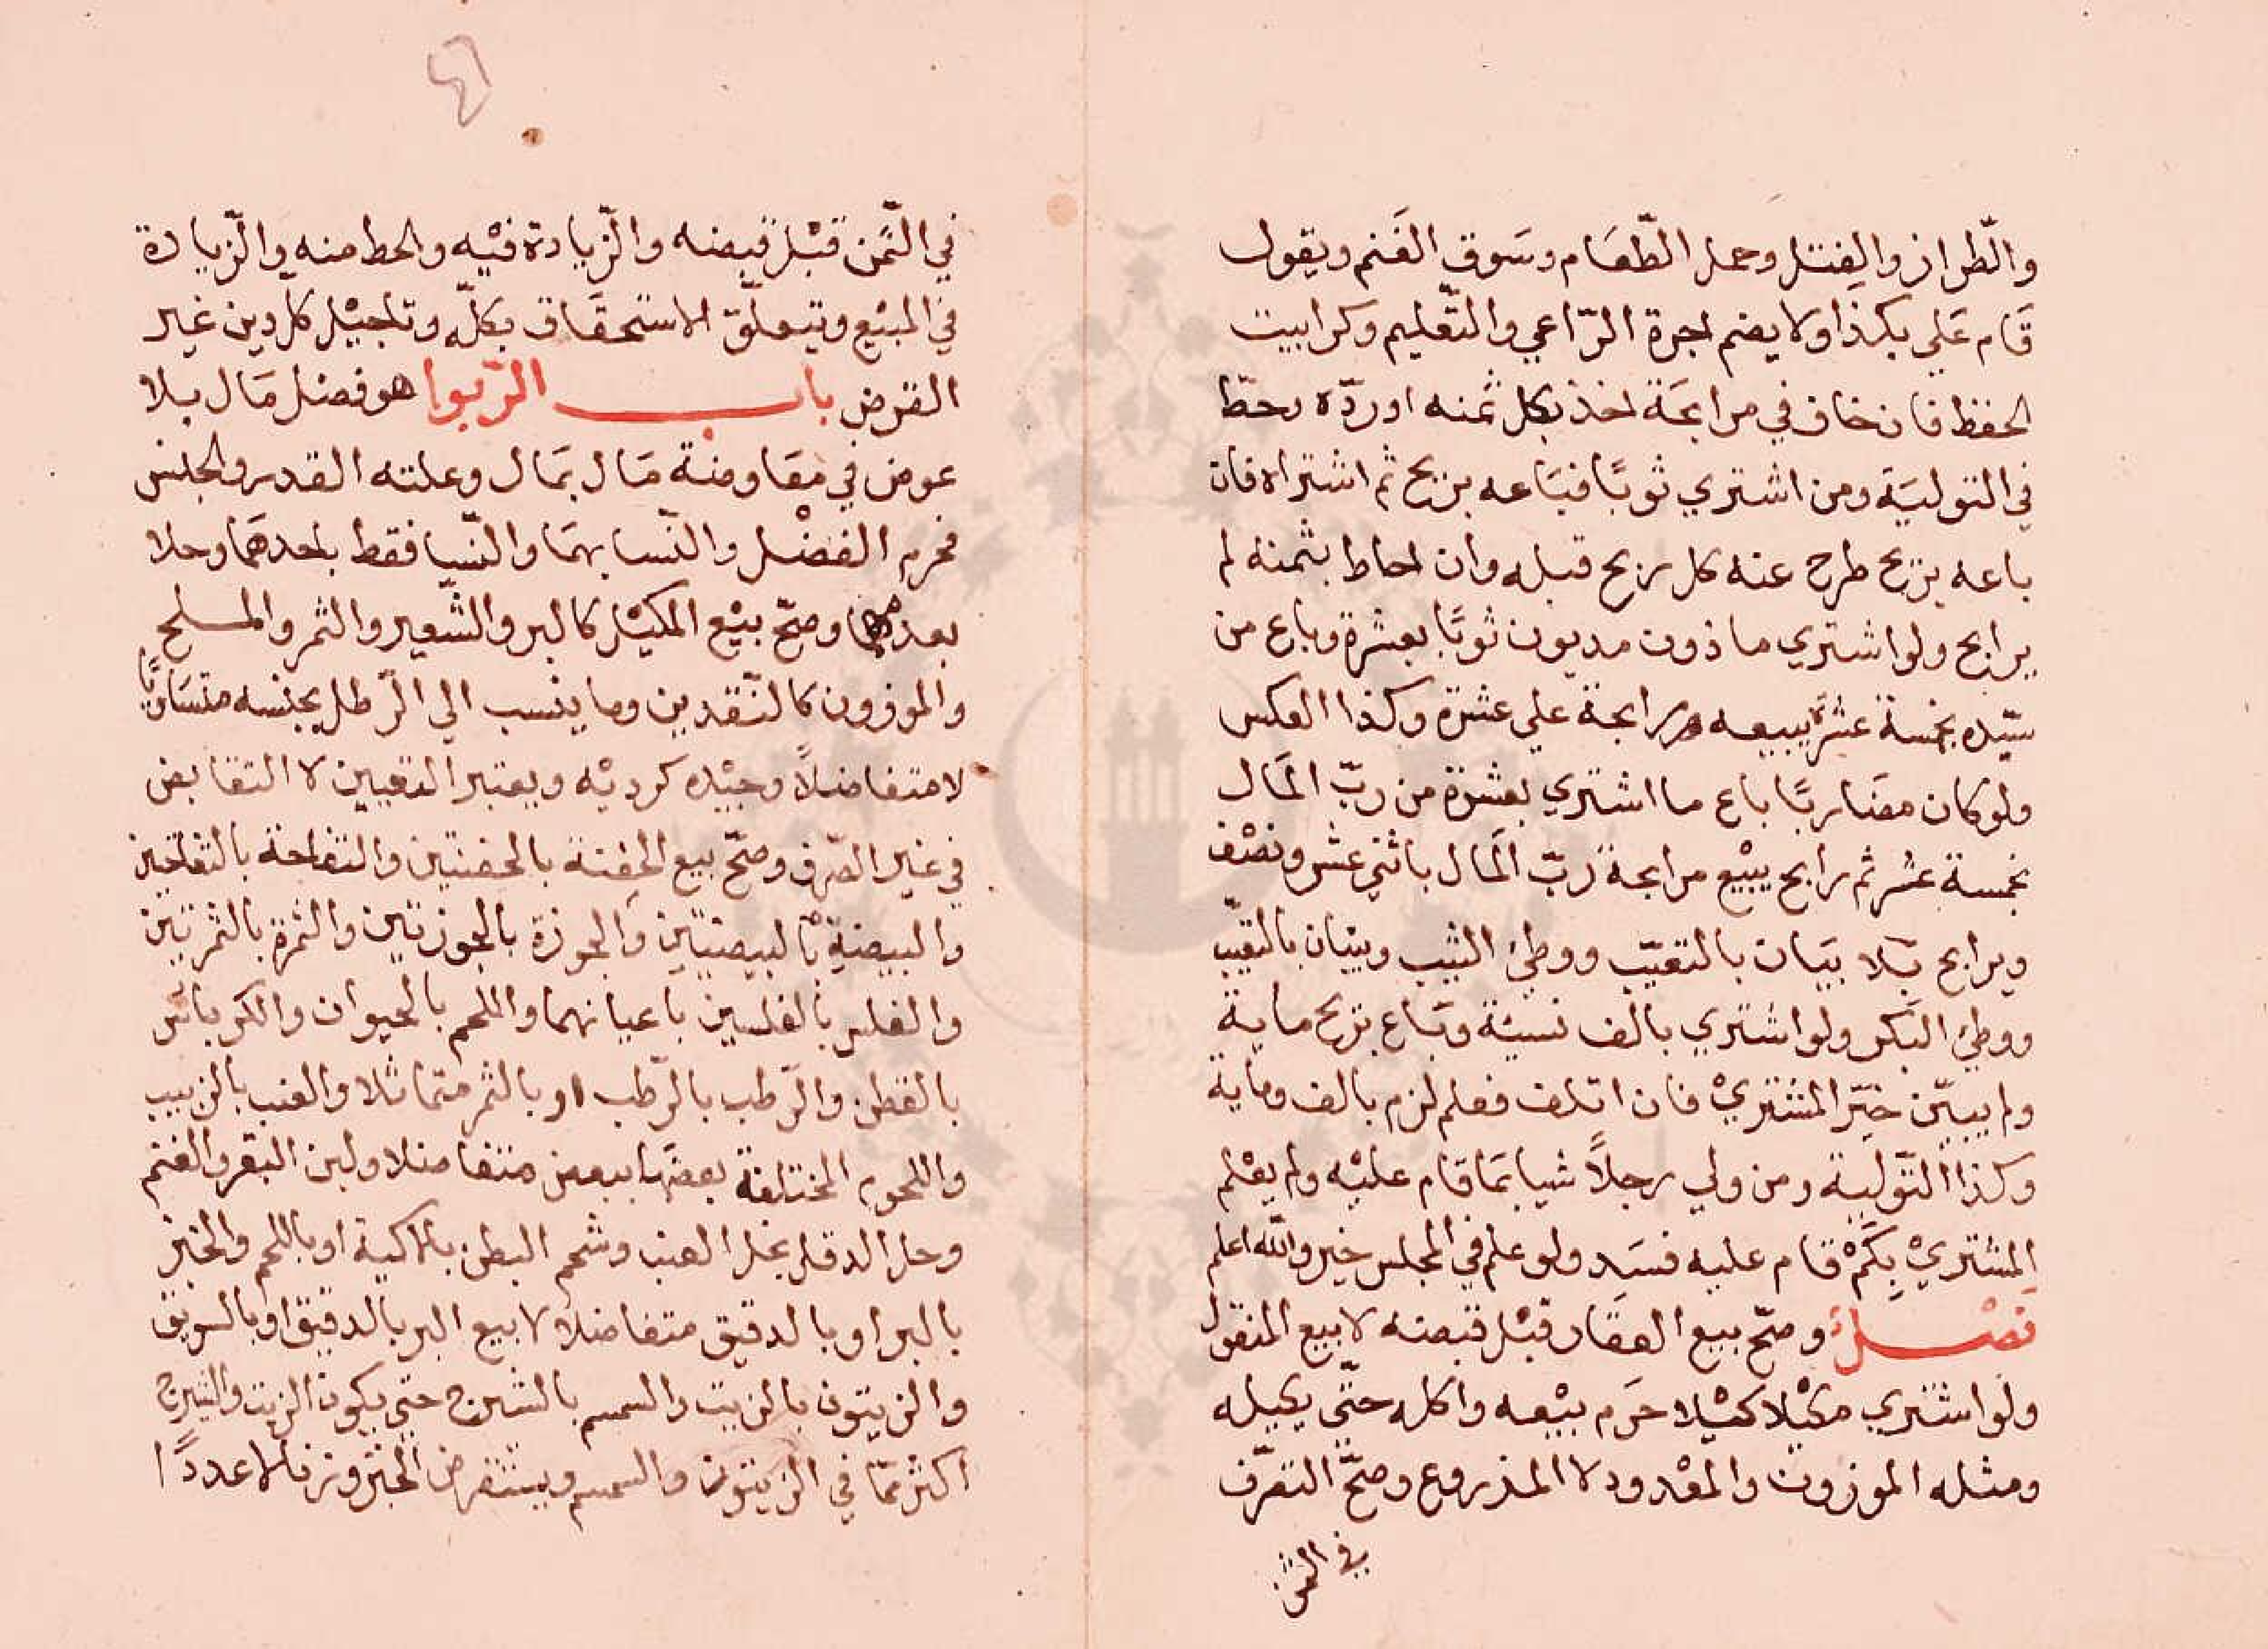 والطراز والفتل وحمل الطعام وسوق الغنم ويقول
قام علي بكذا ولا يضم اجرة الراعي والتعليم وكرا بيت
الحفظ فان خان في مرابحة اخذ بكل ثمنه او ردّه وحطّ
في التولية ومن اشتري ثوبًا فباعه بربح ثم اشتراه فان
باعه بربح طرح عنه كل ربح قبله وان احاط بثمنه لم
يرابح ولو اشتري ماذون مديون ثوبًا بعشرة وباع من
سيّده بخمسة عشر يبيعه مرابحة علي عشرة وكذا العكس
ولو كان مضاربًا باع ما اشتري بعشرة من ربّ المال
بخمسة عشر ثم رابح يبيع مرابحة ربّ المال باثني عشر ونصف
ويرابح بلا بيان بالتعيّب ووطئ الثيب وببيان بالتعيّب
ووطئ البكر ولو اشتري بالف نسيئة وباع بربح ماية
ولم يبيّن خيّر المشتري فان اتلف فعلم لزم بالف وماية
وكذا التولية ومن ولي رجلاً شيا بما قام عليه ولم يعلم
المشتري بكم قام عليه فسد ولو علم في المجلس خير والله اعلم
فصل وصحّ بيع العقار قبل قبضه لا بيع المنقول
ولو اشتري مكيلا كيلا حرم بيعه واكله حتّي يكيله
ومثله الموزون والمعدود لا المذروع وصحّ التصرّف
في الثمن
٤٦
في الثّمن قبل قبضه والزّيادة فيه والحط منه والزّيادة
في المبيع ويتعلّق الاستحقاق بكلّه وتاجيل كل دين غير
القرض باب الرّبوا هو فضل مال بلا
عوض في معاوضة مال بمال وعلته القدر والجنس
فحرم الفضل والنّسا بهما والنّسا فقط باحدهما وحلا
بعدمهما وصحّ بيع المكيل كالبر والشّعير والتمر والملح
والموزون كالنّقدين وما ينسب الي الرّطل بجنسه متساويًا
لا متفاضلاً وجيّده كرديّه ويعتبر التعيين لا التقابض
في غير الصّرف وصحّ بيع الحفنة بالحفنتين والتفاحة بالتفاحتين
والبيضة بالبيضتين والجوزة بالجوزتين والتمرة بالتمرتين
والفلس بالفلسين باعيانهما واللحم بالحيوان والكرباس
بالقطن والرّطب بالرّطب او بالتمر متماثلا والعنب بالزبيب
واللحوم المختلفة بعضها ببعض متفاضلا ولبن البقر والغنم
وخل الدقل بخل العنب وشحم البطن بالالية او باللحم والخبز
بالبر او بالدقيق متفاضلا لا بيع البر بالدقيق او بالسويق
والزيتون بالزيت والسمسم بالشيرج حتي يكون الزيت والشيرج
اكثر ممّا في الزيتون والسمسم ويستقرض الخبز وزنا لا عددًا